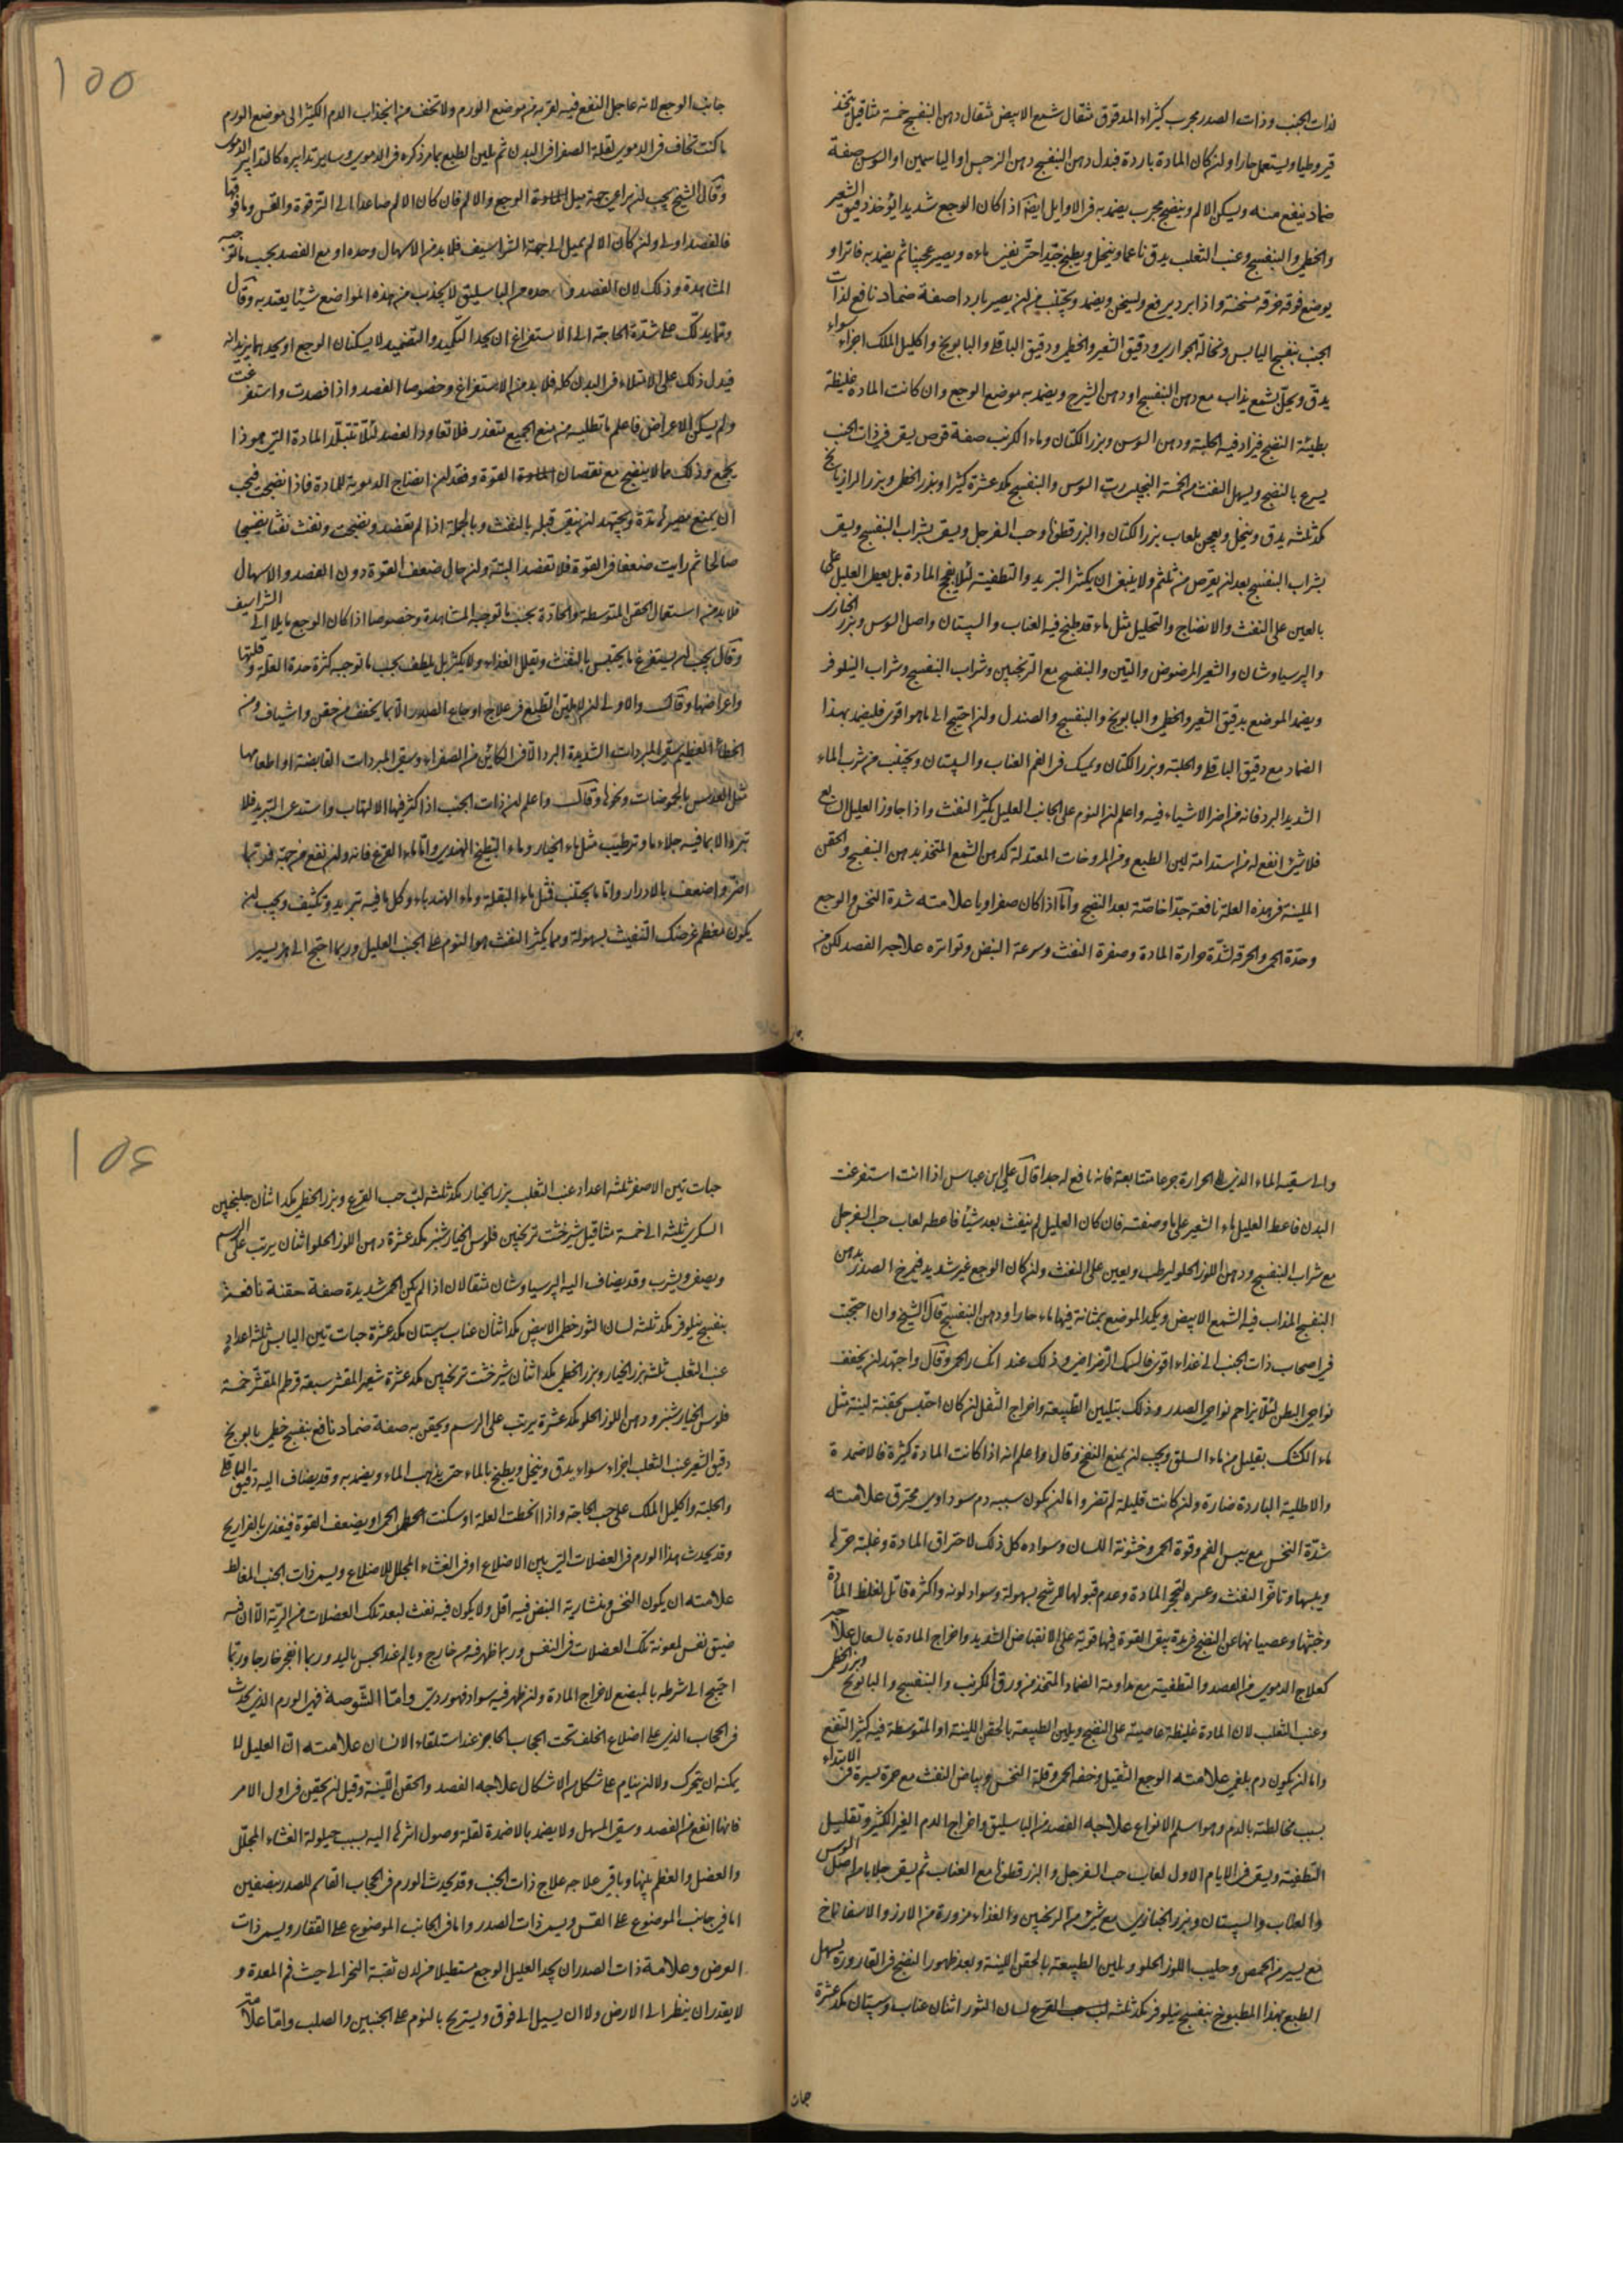 لذات الجنب وذات الصدر مجرب كثيراء المدقوق مثقال شمع الابيض مثقال دهن البنفسج خمسة مثاقيل يتخذ
قيروطيا ويستعمل حارا ولن كان المادة باردة فبدل دهن البنفسج دهن النرجس او الياسمين او السوسن صفة
ضماد ينفع منه ويسكن الالم وينضج مجرب يضمد به فى الاوايل ايضا اذا كان الوجع شديدا يؤخذ دقيق الشعير
والخطمى والبنفسج وعنب الثعلب يدق ناعما وينخل ويطبخ جيدا حتى يفنى ماءه ويصير عجينا ثم يضمد به فاترا و
يوضع فوقه خرقة مسخنة واذا برد يرفع وليسخن ويضمد ويجتنب من لن يصير باردا صفة ضماد نافع لذات
الجنب بنفسج اليابس ونخالة الحوارى ودقيق الشعير والخطمى ودقيق الباقلى والبابونج واكليل الملك اجزاء سواء
يدق ويحل بشمع يذاب مع دهن البنفسج او دهن الشيرج ويضمد به موضع الوجع وان كانت المادة غليظة
بطيئة النضج فيزاد فيه الحلبة ودهن السوسن وبزر الكتان وماء الكرنب صفة قرص يسقى فى ذات الجنب
يسرع بالنضج ويسهل النفث رب السوس والبنفسج مكد عشرة كثيرا وبزر الخطمى وبزر الرازيانج
مكد ثلثه يدق وينخل ويعجن بلعاب بزر الكتان والبزرقطونا وحب السفرجل ويسقى بشراب البنفسج ويسقى
بشراب البنفسج بعد لن يقرص ولا ينبغى ان يكثر التبريد والتطفية لئلا يفج المادة بل يعطى العليل على
بالعين على النفث والانضاج والتحليل مثل ماء قد طبخ فيه العناب والسپستان واصل السوس وبزر الخبازى
والپرسياوشان والشعير المرضوض والتين والبنفسج مع الترنجبين وشراب البنفسج وشراب النيلوفر
ويضمد الموضع بدقيق الشعير والخطمى والبابونج والبنفسج والصندل ولن احتيج الى ماهو اقوى فليضمد بهذا
الضماد مع دقيق الباقلى والحلبة وبزر الكتان ويمسك فى الفم العناب والسپستان ويجتنب من شرب الماء
الشديد البرد فانه من اضر الاشياء فيه واعلم لن النوم على الجانب العليل يكثر النفث واذا جاوز العليل السابع
فلا شئ انفع له من استدامة لين الطبع ومن المروخات المعتدلة كدهن الشمع المتخذ بدهن البنفسج والحقن
الملينة فى هذه العلة نافعة جدا خاصة بعد النضج واما اذا كان صفراويا علامته شدة النخس والوجع
وحدة الحمى والحرقة لشدة حرارة المادة وصفرة النفث وسرعة النبض وتواتره علاجه الفصد لكن من
۱۵۵
جانب الوجع لانه عاجل النفع فيه لقربه من موضع الورم ولا تخف من انجذاب الدم الكثير الى موضع الورم
ما كنت تخاف فى الدموى لقلة الصفرا فى البدن ثم تليين الطبع بما مر ذكره فى الدموى وساير تدابيره كالتدابير الدموى
وقال الشيخ يجب لن يراعى جهة ميل الوجع والالم فان كان الالم صاعدا الى الترقوة والقس وما فوقها
فالفصد اولى ولن كان الالم يميل الى جهة الشراسيف فلا بد من الاسهال وحده او مع الفصد بحسب ما توجبه
المشاهدة وذلك لان الفصد وحده من الباسليق لا يجذب من هذه المواضع شيئا يعتد به وقال
ومما يدلك على شدة الحاجة الى الاستفراغ ان يجد التكميد والتضميد لا يسكنان الوجع او يجدهما يزيدانه
فيدل ذلك على الامتلاء فى البدن كله فلا بد من الاستفراغ وخصوصا الفصد واذا فصدت واستفرغت
ولم يسكن الاعراض فاعلم ما تطلبه من منع الجميع متعذر فلا تعاود الفصد لئلا تتبلد المادة التى هو ذا
يجمع وذلك مما لا ينضج مع نقصان القوة وفقد لن انضاج الدموية للمادة فاذا نضجت فيجب
ان يمنع مصيره مدة ويجتهد لن ينقى قبله بالنفث وبالجملة اذا لم تفصد ونضجت ونفث نفثا نضيجا
صالحا ثم رايت ضعفا فى القوة فلا تفصد البتة ولن حال ضعف القوة دون الفصد والاسهال
فلا بد من استعمال الحقن المتوسطة والحادة بحسب ما توجبه المشاهدة وخصوصا اذا كان الوجع مايلا الى الشراسيف
وقال يجب لن يستفرغ ما يحتبس بالنفث ويقلل الغذاء ولا يكثر بل يلطف بحسب ما توجبه كثرة حدة العلة وقلتها
واعراضها وقال والاولى لن لا يلين الطبع فى علاج اوجاع الصدور الا بما يخفف من حقن واشياف ومن
الخطاء العظيم سقى المبردات الشديدة البرد الا فى الكائن من الصفراء وسقى المبردات القابضة او اطعامها
مثل العدس بالحموضات ونحوها وقال واعلم لن ذات الجنب اذا كثر فيها الالتهاب واستدعى التبريد فلا
تبرد الا بما فيه جلاء ما وترطيب مثل ماء الخيار وماء البطيخ الهندى واما ماء القرع فانه ولن نفع من جهة فربما
اضر واضعف بالادرار واما ما يجتنب فمثل ماء البقلة وماء الهندباء وكل ما فيه تبريد وتكثيف ويجب لن
يكون معظم غرضك التنفيث بسهولة ومما يكثر النفث هو النوم على الجنب العليل وربما احتيج الى هز يسير
والى سقيه الماء الذى الى الحرارة جرعا متتابعة فانه نافع له جدا قال على ابن عباس اذا انت استفرغت
البدن فاعط العليل ماء الشعير على ما وصفته فان كان العليل لم ينفث بعد شيئا فاعطه لعاب حب السفرجل
مع شراب البنفسج ودهن اللوز الحلو ليرطب ويعين على النفث ولن كان الوجع غير شديد فيمرخ الصدر بدهن
البنفسج المذاب فيه الشمع الابيض ويكمد الموضع بمثانة فيها ماء حار او دهن البنفسج قال الشيخ وان احتجت
فى اصحاب ذات الجنب الى غذاء اقوى فالسمك الرضراضى وذلك عند انكسار الحمى وقال واجتهد لن يخفف
نواحى البطن لئلا يزاحم نواحى الصدر وذلك بتليين الطبيعة واخراج الثفل لن كان احتبس بحقنة لينة مثل
ماء الكشك بقليل من ماء السلق ويجب لن يمنع النفخ وقال واعلم انه اذا كانت المادة كثيرة فالاضمدة
والاطلية الباردة ضارة ولن كانت قليلة لم تضر واما لن يكون سببه دم سوداوى محترق علامته
شدة النخس مع يبس الفم وقوة الحمى وخشونة اللسان وسواده كل ذلك لاحتراق المادة وغلبة حرها
ويبسها وتاخر النفث وعسره لتحجر المادة وعدم قبولها للرشح بسهولة وسواد لونه واكثره قاتل لغلظ المادة
وخبثها وعصيانها عن النضج فى مدة يبقى القوة فيها قوية على الانقباض الشديد واخراج المادة بالسعال علاجه
كعلاج الدموى من الفصد والتطفية مع مداومة الضماد المتخذ من ورق الكرنب والبنفسج والبابونج وبزر الخطمى
وعنب الثعلب لان المادة غليظة عاصية على النضج ويلين الطبيعة بالحقن اللينة او المتوسطة فيه كثير النفع
واما لن يكون دم بلغمى علامته الوجع الثقيل وخفة الحمى وقلة النخس وبياض النفث مع حمرة يسيرة فى الابتداء
بسبب مخالطته بالدم وهو اسلم الانواع علاجه الفصد من الباسليق واخراج الدم الغير الكثير وتقليل
التطفية ويسقى فى الايام الاول لعاب حب السفرجل والبزرقطونا مع العناب ثم يسقى جلابا من اصل السوس
والعناب والسپستان وبزر الخبازى مع شئ من الترنجبين والغذاء مزورة من الارز والاسفاناخ
مع يسير من الحمص وحليب اللوز الحلو ويلين الطبيعة بالحقن اللينة وبعد ظهور النضج فى القارورة يسهل
الطبع بهذا المطبوخ بنفسج نيلوفر مكد ثلثه لسان الثور اثنان عناب وسپستان مكد عشرة
۱۵۶
حبات تين الاصفر ثلثه اعداد عنب الثعلب بزر الخيار مكد ثلثه لب حب القرع وبزر الخطمى مكد اثنان جلنجبين
السكرى ثلثه الى خمسة مثاقيل شيرخشت ترنجبين فلوس الخيار شنبر مكد عشرة دهن اللوز الحلو اثنان يرتب على الرسم
ويصفى ويشرب وقد يضاف اليه الپرسياوشان مثقالان اذا لم يكن الحمى شديدة صفة حقنة نافعة
بنفسج نيلوفر مكد ثلثه لسان الثور خطمى الابيض مكد اثنان عناب سپستان مكد عشرة حبات تين اليابس ثلثه اعداد
عنب الثعلب ثلثه بزر الخيار وبزر الخطمى مكد اثنان شيرخشت ترنجبين مكد عشرة شعير المقشر سبعة قرطم المقشر خمسة
فلوس الخيار شنبر ودهن اللوز الحلو مكد عشرة يرتب على الرسم ويحقن به صفة ضماد نافع بنفسج خطمى بابونج
دقيق الشعير عنب الثعلب اجزاء سواء يدق وينخل ويطبخ بالماء حتى يذهب الماء ويضمد به وقد يضاف اليه دقيق الباقلى
والحلبة واكليل الملك على حسب الحاجة واذا انحطت العلة او سكنت الحمى او يضعف القوة فيغذى بالفراريج
وقد يحدث هذا الورم فى العضلات التى بين الاضلاع او فى الغشاء المجلل للاضلاع ويسمى ذات الجنب المغالط
علامته ان يكون النخس ومنشارية النبض فيه اقل ولا يكون فيه نفث لبعد تلك العضلات من الرية الا ان فيه
ضيق نفس لمعونة تلك العضلات فى النفس وربما ظهر فيه من خارج ويالم عند الجس باليد وربما انفجر خارجا وربما
احتيج الى شرطه بالمبضع لاخراج المادة ولن ظهر فيه سواد فهو ردى واما الشوصة فهى الورم الذى يحدث
فى الحجاب الذى على اضلاع الخلف تحت الحجاب الحاجز عند استلقاء الانسان علامته ان العليل لا
يمكنه ان يتحرك ولا لن ينام على شكل من الاشكال علاجه الفصد والحقن اللينة وقيل لن يحقن فى اول الامر
فانها انفع من الفصد وسقى المسهل ولا يضمد بالاضمدة لقلة وصول اثرها اليه بسبب حيلولة الغشاء المجلل
والعضل والعظم بينها وباقى علاجه علاج ذات الجنب وقد يحدث الورم فى الحجاب القاسم للصدر بنصفين
اما فى جانب الموضوع على القس ويسمى ذات الصدر واما فى الجانب الموضوع على الفقار ويسمى ذات
العرض وعلامة ذات الصدر ان يجد العليل الوجع مستطيلا من لدن ثقبة النحر الى حيث فم المعدة و
لا يقدر ان ينظر الى الارض ولا ان يميل الى فوق ويستريح بالنوم على الجنبين والصلب واما علامة